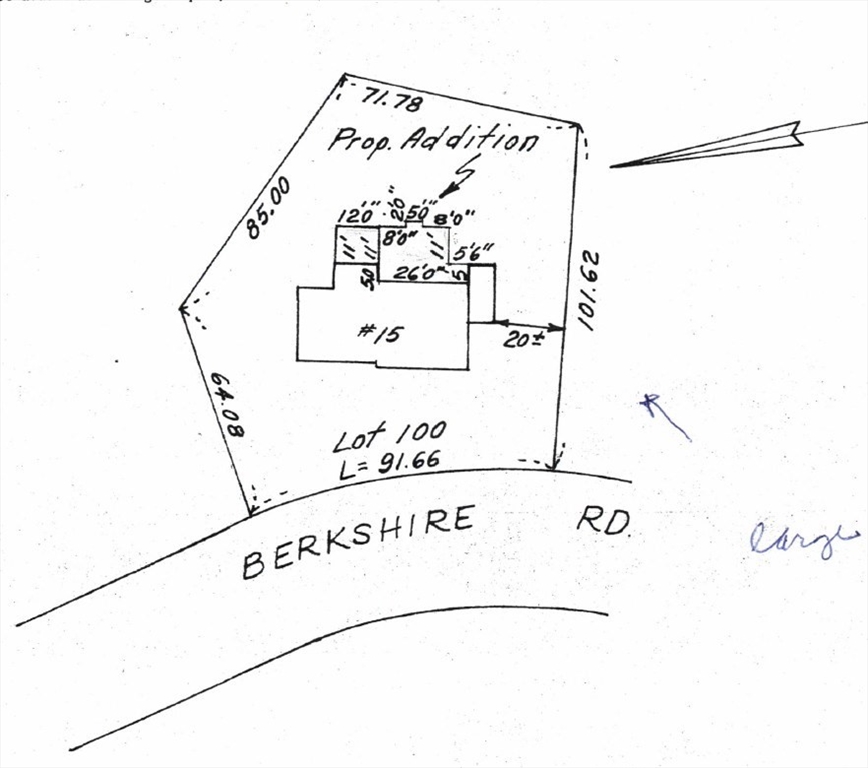 71.78
Prop. Addition
85.00
2'0"
12'0"
5'0"
8'0"
8'0"
5'6"
50
26'0"
5
101.62
#15
20±
64.08
Lot 100
L= 91.66
BERKSHIRE RD.
large